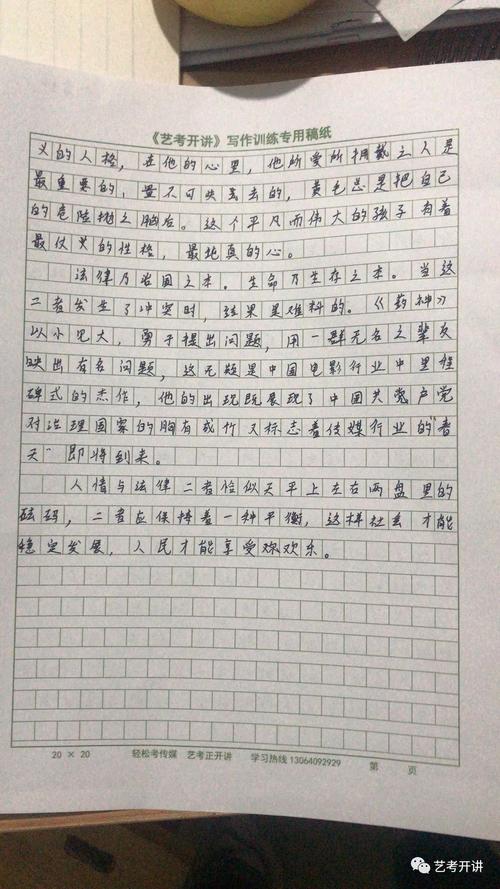 《艺考开讲》写作训练专用稿纸
义的人格，在他的心里，他所爱所拥戴之人是
最重要的，是不可失丢去的，黄毛总是把自己
的危险抛之脑后。这个平凡而伟大的孩子有着
最仗义的性格，最纯真的心。
法律乃治国之本。生命乃生存之本。当这
二者发生了冲突时，结果是难料的。《药神》
以小见大，勇于提出问题，用一群无名之辈反
映出有名问题，这无疑是中国电影行业中里程
碑式的杰作，他的出现既展现了中国共党产党
对治理国家的胸有成竹又标志着传媒行业的"春
天"即将到来。
人情与法律二者恰似天平上左右两盘里的
砝码，二者应保持着一种平衡，这样社会才能
稳定发展，人民才能享受欢欢乐。
20 × 20 轻松考传媒 艺考正开讲 学习热线 13064092929 第 页
艺考开讲